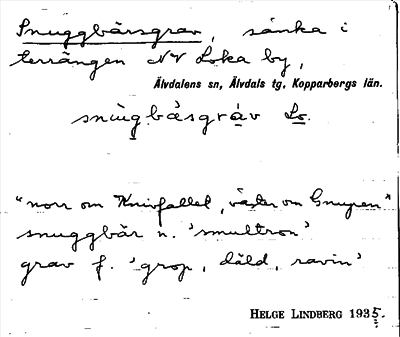 Snuggbärsgrav, sänka i
terrängen NV Loka by,
Älvdalens sn, Älvdals tg, Kopparbergs län.
snùgbäsgrav Lo.
"norr om Knivfallet, väster om Gnupen"
snuggbär n. 'smultron'
grav f. 'grop, däld, ravin'
HELGE LINDBERG 1935.